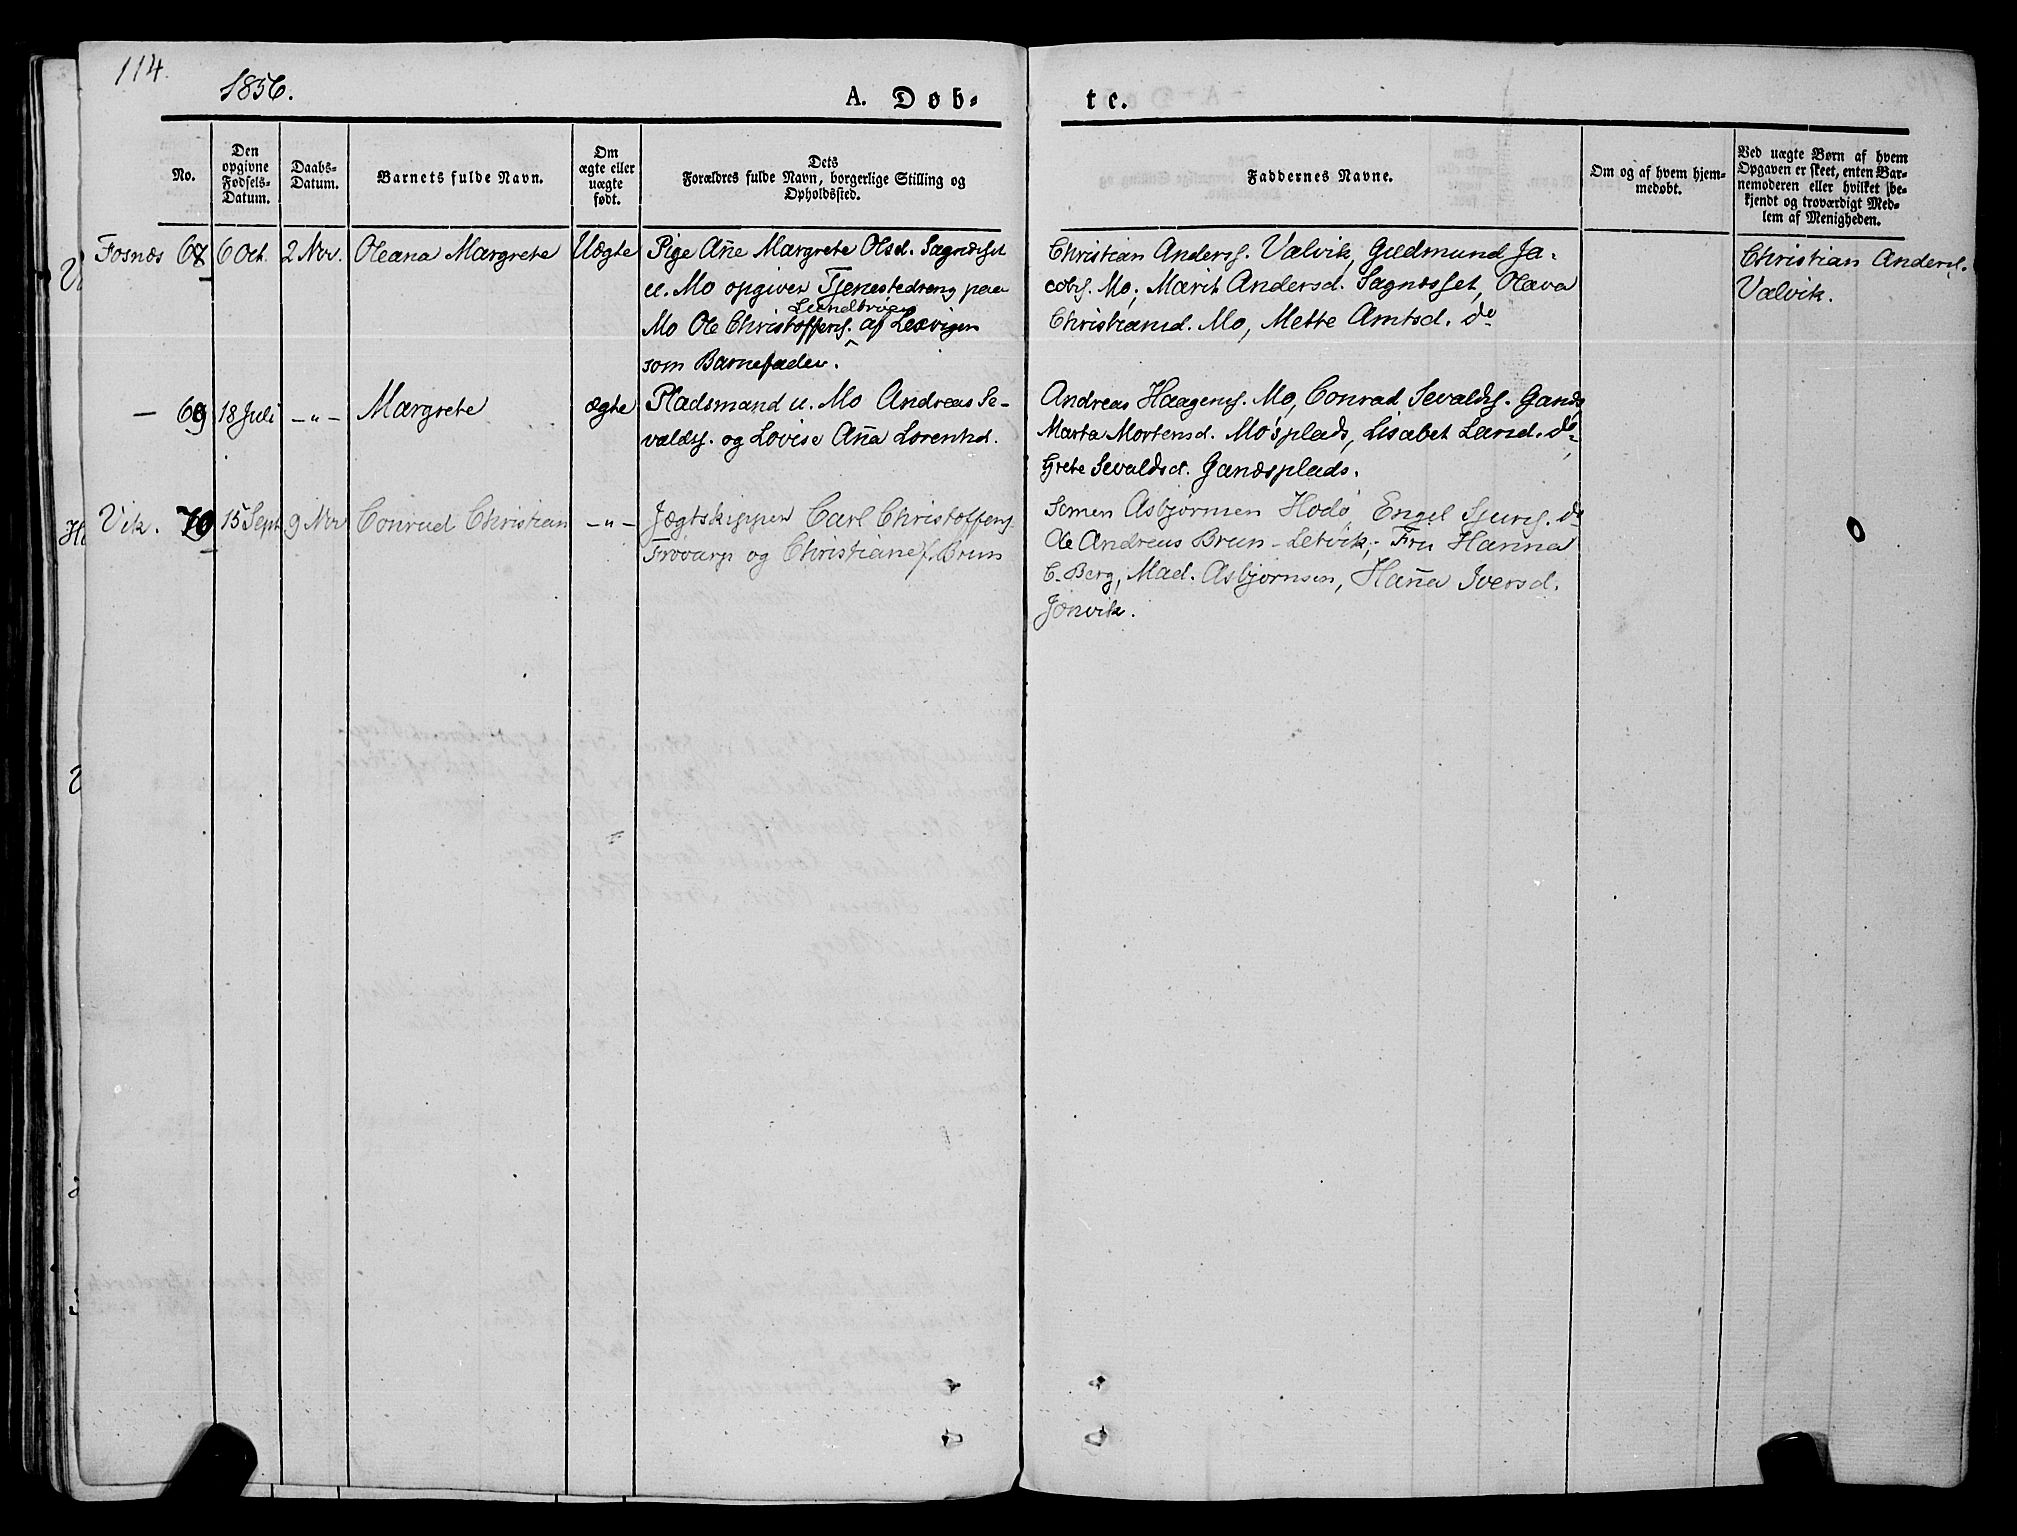 114.
1856.
A. Døb-
te.
No.
Den opgivne Fødsels-Datum.
Daabs-Datum.
Barnets fulde Navn.
Om ægte eller uægte født.
Dets Forældres fulde Navn, borgerlige Stilling og Opholdssted.
Faddernes Navne.
Om og af hvem hjem-medøbt.
Ved uægte Børn af hvem Opgaven er skeet, enten Bar-nemoderen eller hvilket be-kjendt og troværdigt Med-lem af Menigheden.
Fosnæs 68 6 Oct. 2 Nov. Oleana Margrete Uægte
Pige Ane Margrete Olsd. Sagnæsset
u. Mo opgiver Tjenestedreng paa
Mo Ole Christoffers. af Lexvigen
som Barnefader.
Christian Anders. Valvik, Guldmund Ja-
cobs. Mo, Marit Andersd. Sagnesset, Olava
Christiansd. Mo, Mette Amtsd. do
Christian Anders.
Valvik.
— 69 18 Juli —"— Margrete ægte
Pladsmand u. Mo Andreas Se-
valds. og Lovise Ana Lorentsd.
Andreas Haagens. Mo, Conrad Sevalds. Gands
Marta Mortensd. Mo's plads, Lisabet Larsd. do
Grete Sevaldsd. Gansplads.
Vik. 70 15 Sept 9 Nov Conrad Christian —"—
Jægtskipper Carl Christoffers
Frøvarp og Christiane f. Brun
Asbjørnsen Hodø Engel Sjurs. do
Ole Andreas Brun - Letvik, Fru Hanna
C. Berg, Mad. Asbjørnsen, Hana Iversd.
Jønvik.